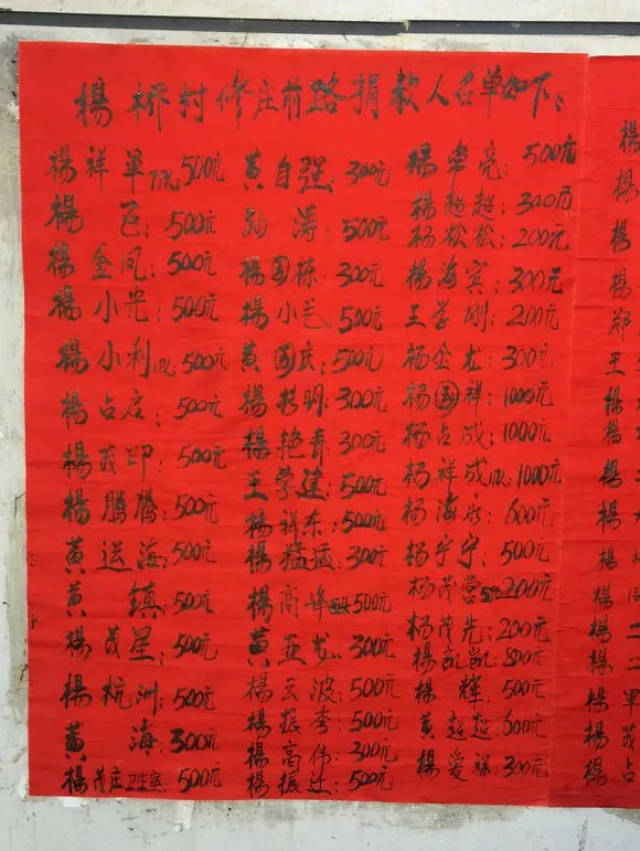 楊桥村修庄前路捐款人名单如下:
楊祥軍 500元
楊 :500元
楊金凤:500元
楊小光:500元
楊小利 500元
楊占启:500元
楊茂印:500元
楊腾腾:500元
黄运海:500元
黄 镇:500元
楊茂星:500元
楊杭洲:500元
黄 海:300元
楊茂庄卫生室:500元
黄自强:300元
涛:500元
楊国栋:300元
楊小艺:500元
黄国庆:500元
楊 明:300元
楊艳青:300元
王学建:500元
楊祥东:500元
楊猛猛:300元
楊高峰 500元
黄亚龙:300元
楊云波:500元
楊振 :500元
楊高伟:300元
楊振 :500元
楊常亮:500元
楊超超:300元
杨松松:200元
楊海宾:300元
王学刚:200元
杨金龙:300元
杨国祥:1000元
杨占成:1000元
杨祥成 1000元
杨海永:600元
杨宁宁:500元
杨茂营 200元
杨茂先:200元
楊凯凯:800元
楊 辉:500元
黄超超:600元
楊爱 :300元
楊
楊
楊
楊
郑
王
楊
楊
楊
楊
楊
楊